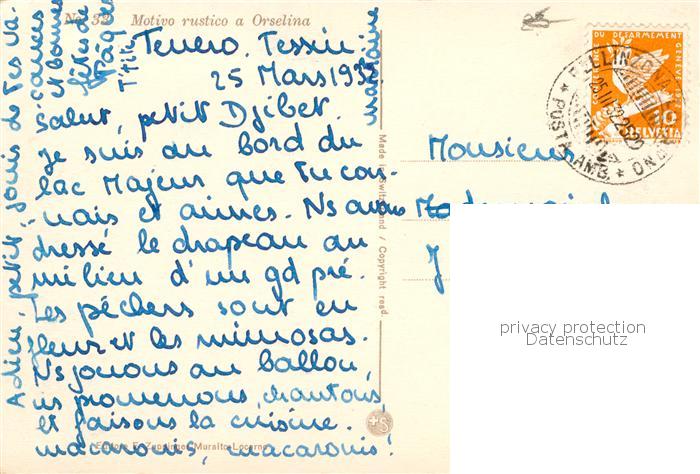 No. 33 Motivo rustico a Orselina
Tenero. Tessin.
25 Mars 1932.
Salut, petit Djibet.
Je suis au bord du
lac Majeur que tu con-
nais et aimes. Ns avons
dressé le drapeau au
milieu d'un gd pré.
Les pêchers sont en
fleur et les mimosas.
Ns jouons au ballon,
ns promenons, chantons,
et faisons la cuisine.
macaronis, macaronis!
Adieu, petit, jouis de tes va-
cances
et bonne
fête de
Pâques
Editore E. Zuppinger, Muralto-Locarno
Made in Switzerland / Copyright resd.
S
Monsieur
J
CONFERENCE DU DESARMEMENT GENEVE 1932
10
HELVETIA
BELLINZONA
25.III.32
POSTA AMB.
privacy protection
Datenschutz